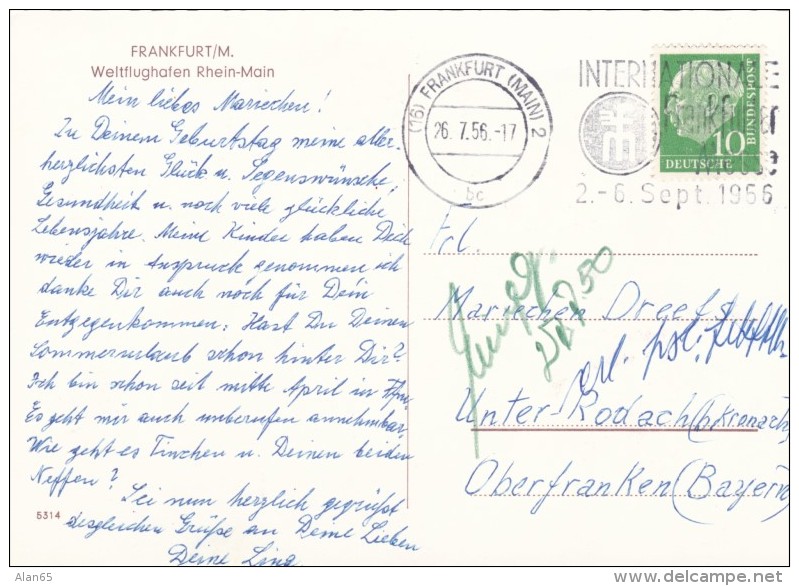 FRANKFURT/M.
Weltflughafen Rhein-Main
Mein liebes Mariechen!
Zu Deinem Geburtstag meine aller-
herzlichsten Glück u. Segenswünsche,
Gesundheit u. noch viele glückliche
Lebensjahre. Meine Kinder haben Dich
wieder in Anspruch genommen ich
danke Dir auch noch für Dein
Entgegenkommen. Hast Du Deinen
Sommerurlaub schon hinter Dir?
Ich bin schon seit mitte April in
Es geht mir auch unberufen annehmbar.
Wie geht es Tinchen u. Deinen beiden
Neffen?
Sei nun herzlich gegrüßt
desgleichen Grüße an Deine Lieben
Deine Lina
5314
(16) FRANKFURT (MAIN) 2
26.7.56.-17
bc
INTERNATIONALE
2.-6. Sept. 1956
10
DEUTSCHE
BUNDESPOST
Frl.
Mariechen
Unter-Rodach (b. Kronach)
Oberfranken (Bayern)
Alan65
www.delcampe.net